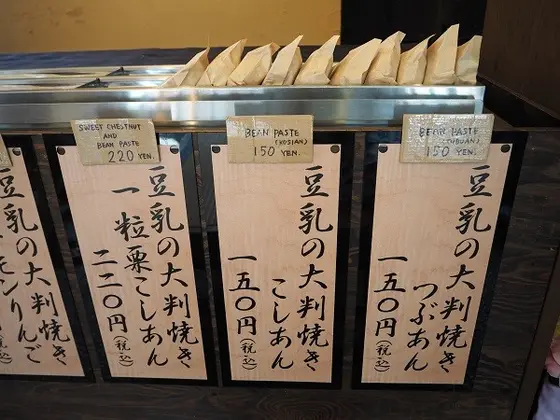 BEAN PASTE
(TUBUAN)
150 YEN.
豆乳の大判焼き
つぶあん
一五〇円(税込)
BEAN PASTE
(KOSIAN)
150 YEN.
豆乳の大判焼き
こしあん
一五〇円(税込)
SWEET CHESTNUT
AND
BEAN PASTE
220 YEN.
豆乳の大判焼き
一粒栗こしあん
二二〇円(税込)
豆乳の大判焼き
モンりんご